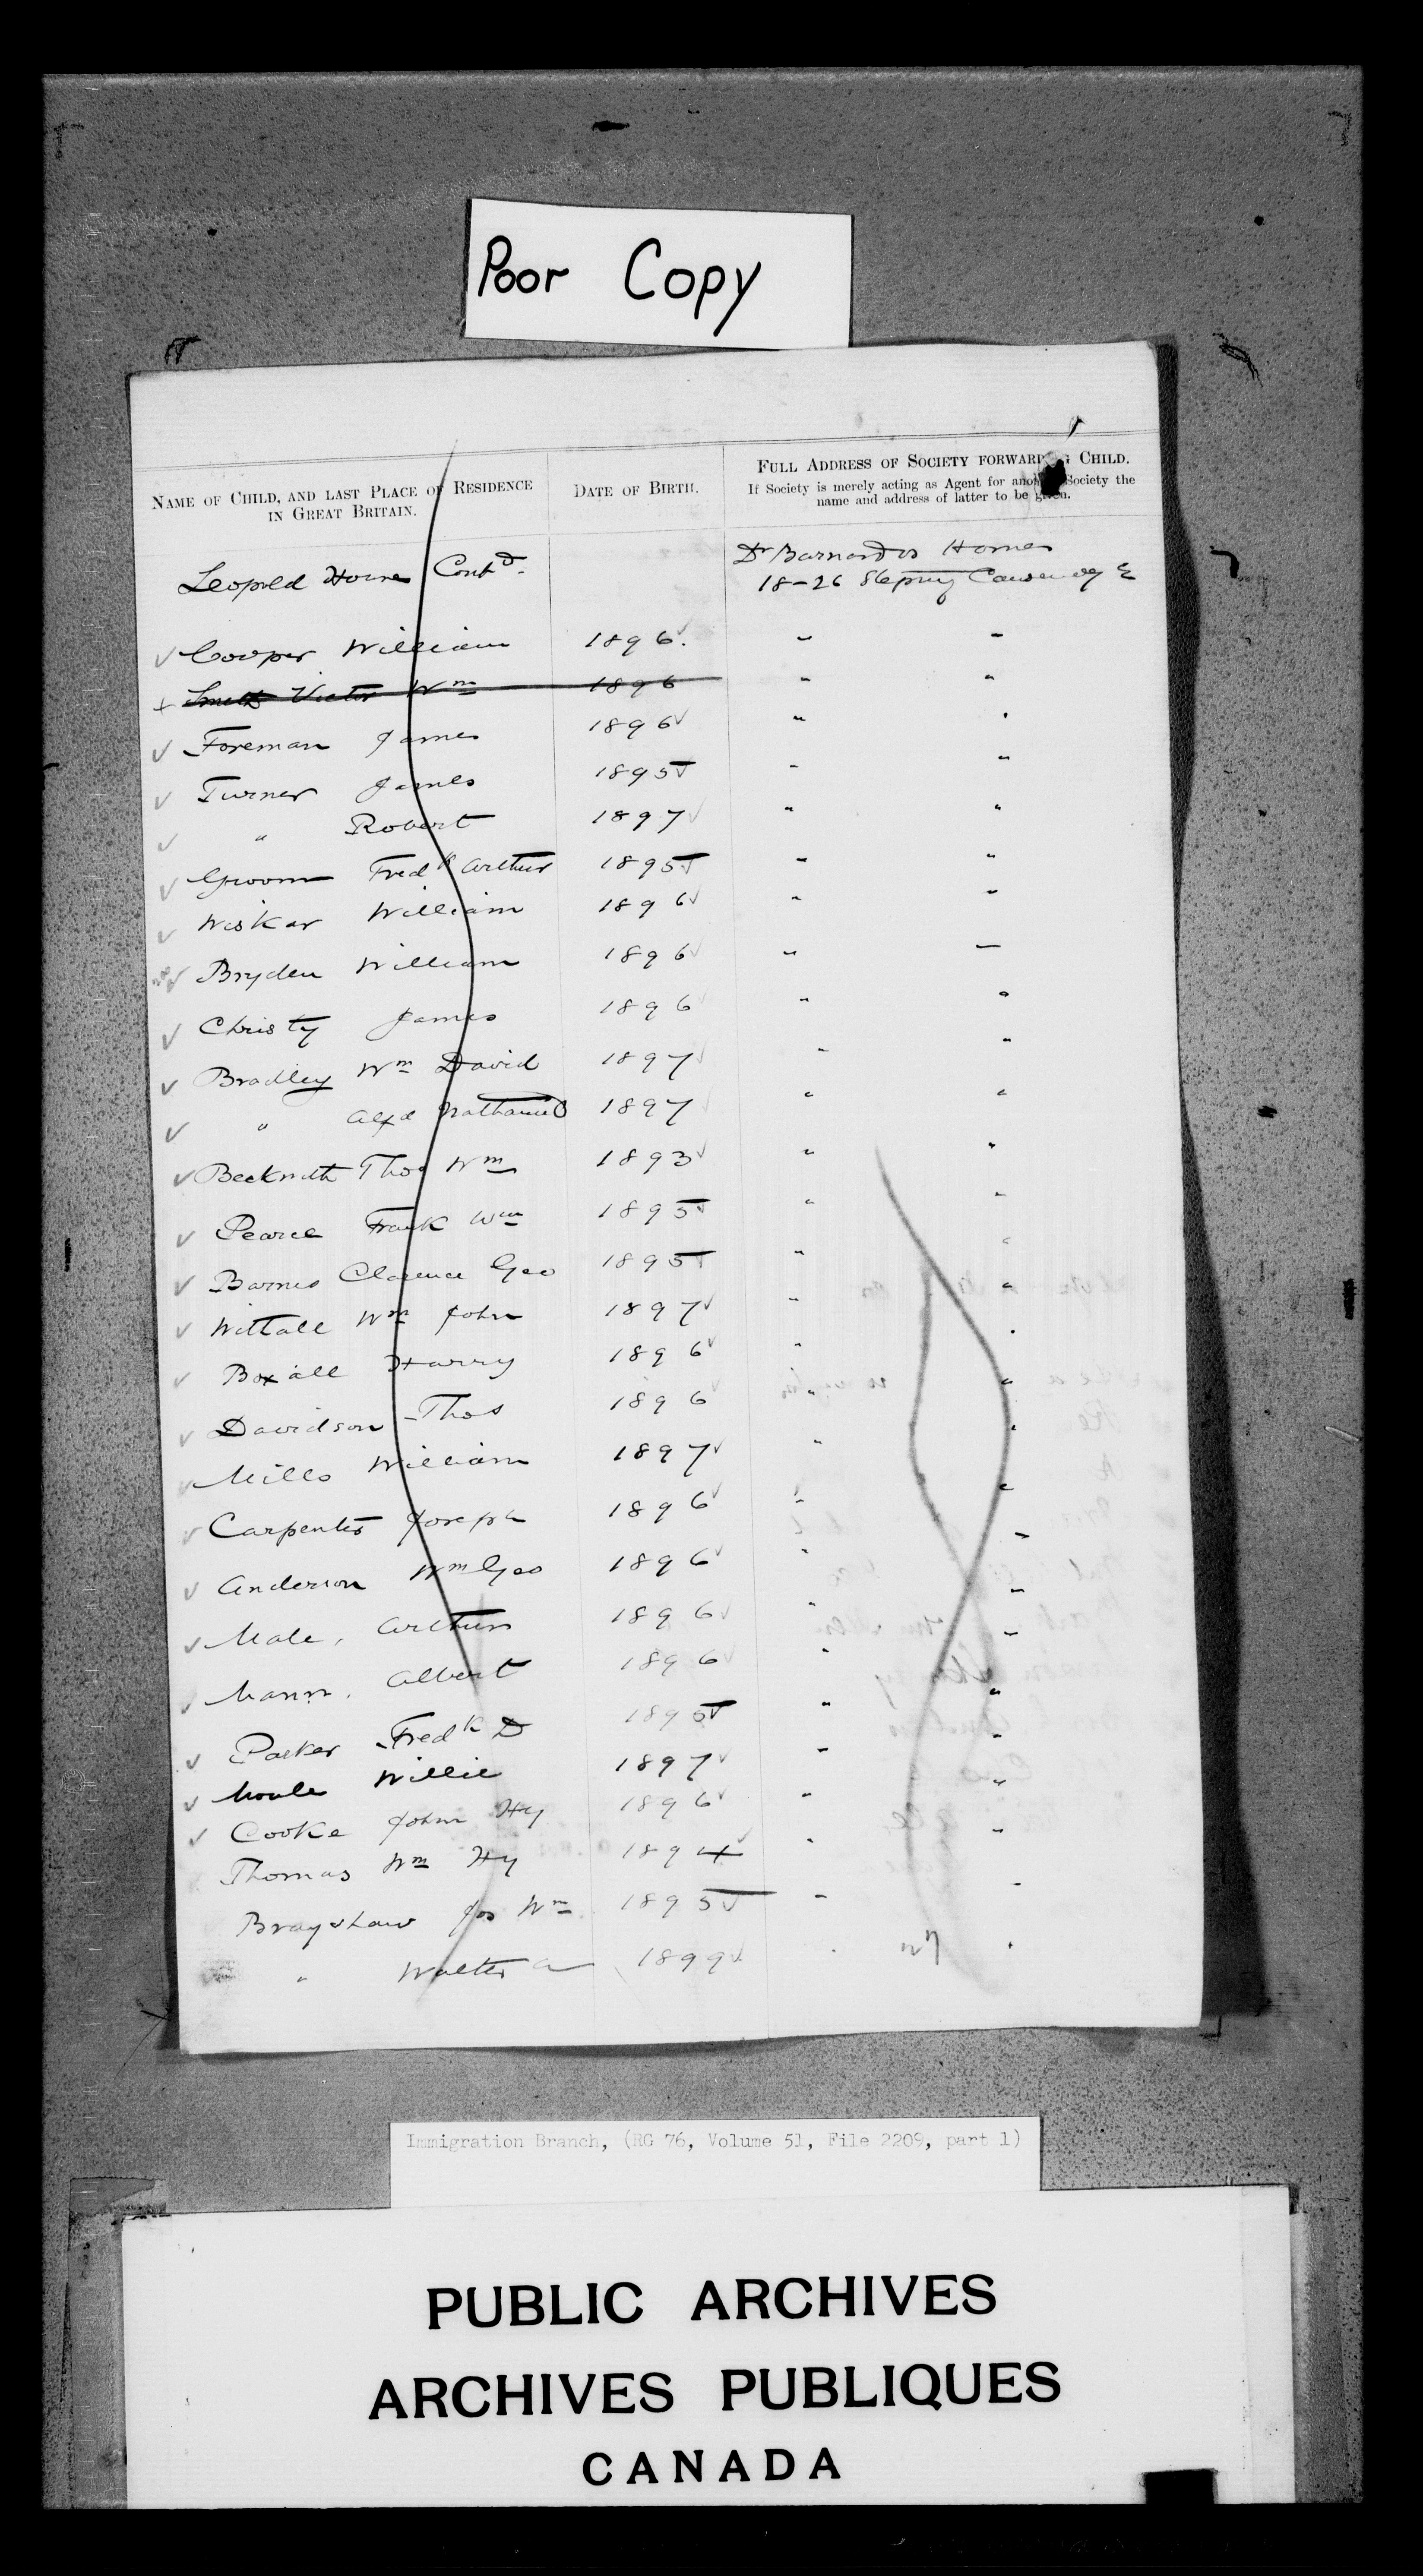 Poor Copy
NAME OF CHILD, AND LAST PLACE OF RESIDENCE IN GREAT BRITAIN.
DATE OF BIRTH.
FULL ADDRESS OF SOCIETY FORWARDING CHILD.
If Society is merely acting as Agent for another Society the
name and address of latter to be given.
Leopold House Contd. Dr Barnardos Homes
18-26 Stepney Causeway E
✓ Cooper William 1896 ✓ " "
x Smith Victor Wm 1896 " "
✓ Foreman James 1896 ✓ " "
✓ Turner James 1895 ✓ " "
✓ " Robert 1897 ✓ " "
✓ Groom Fredk Arthur 1895 ✓ " "
✓ Wiskar William 1896 ✓ " "
✓ Bryden William 1896 ✓ " "
✓ Christy James 1896 ✓ " "
✓ Bradley Wm David 1897 ✓ " "
✓ " Alfd Nathaniel 1897 ✓ " "
✓ Beckwith Thos Wm 1893 ✓ " "
✓ Pearce Frank Wm 1895 ✓ " "
✓ Barnes Clarence Geo 1895 ✓ " "
✓ Wittall Wm John 1897 ✓ " "
✓ Boxall Harry 1896 ✓ " "
✓ Davidson Thos 1896 ✓ " "
✓ Mills William 1897 ✓ " "
✓ Carpenter Joseph 1896 ✓ " "
✓ Anderson Wm Geo 1896 ✓ " "
✓ Male, Arthur 1896 ✓ " "
✓ Mann, Albert 1896 ✓ " "
✓ Parker Fredk D 1895 ✓ " "
✓ Moule Willie 1897 ✓ " "
✓ Cooke John Hy 1896 ✓ " "
Thomas Wm Hy 1894 ✓ " "
Brayshaw Jos Wm 1895 ✓ " "
" Walter A 1899 ✓ " "
Immigration Branch, (RG 76, Volume 51, File 2209, part 1)
PUBLIC ARCHIVES
ARCHIVES PUBLIQUES
CANADA